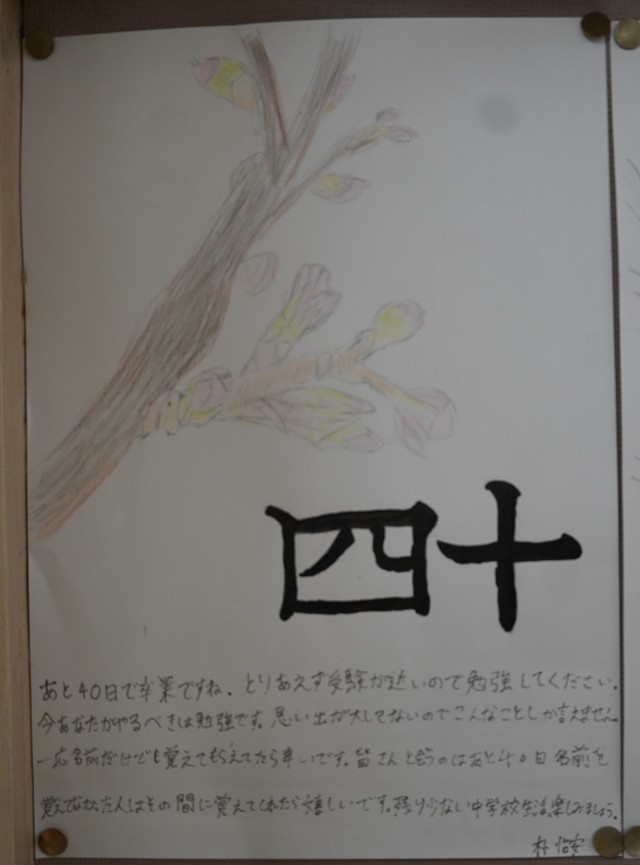 四十
あと40日で卒業ですね。とりあえず受験が近いので勉強してください。
今あなたがやるべきは勉強です。思い出が大してないのでこんなことしか言えません
一応名前だけでも覚えてもらえてたら幸いです。皆さんと会うのはあと40日名前を
覚えてなかった人はその間に覚えてくれたら嬉しいです。残り少ない中学校生活楽しみましょう。
朴